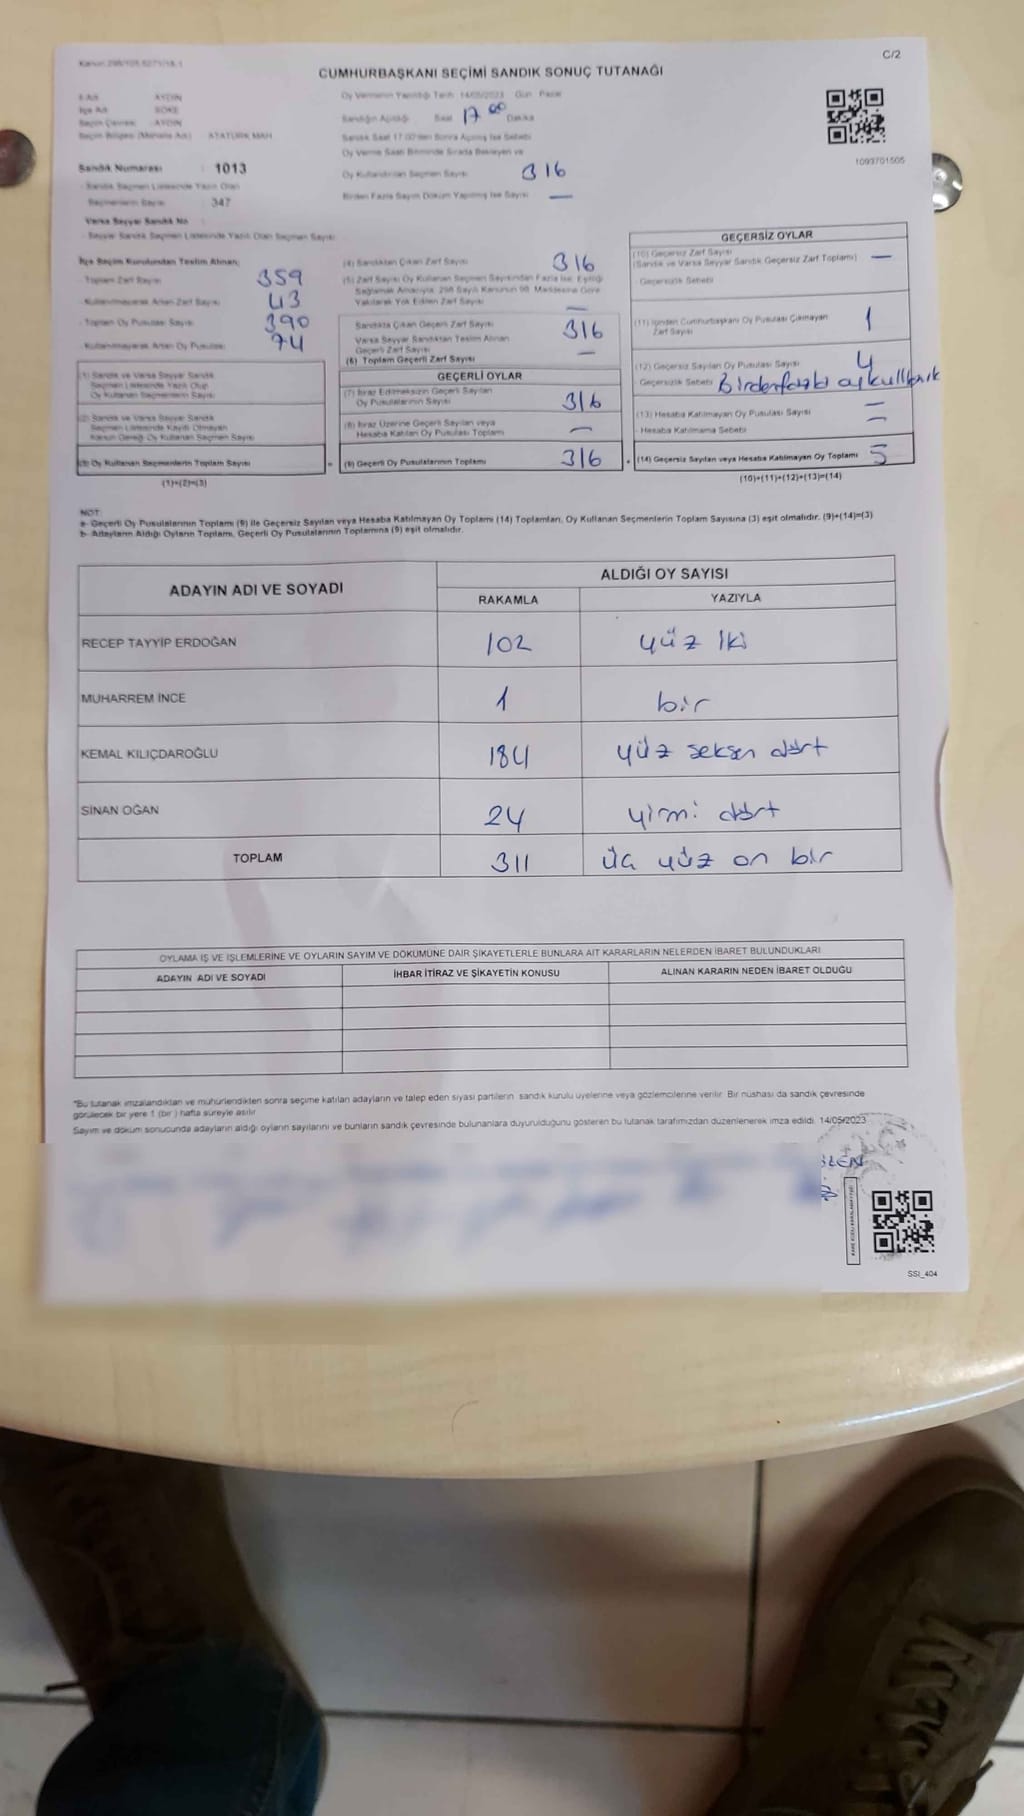 Kanun 298/105,6271/18.1
C/2
CUMHURBAŞKANI SEÇİMİ SANDIK SONUÇ TUTANAĞI
İl Adı AYDIN
İlçe Adı SÖKE
Seçim Çevresi AYDIN
Seçim Bölgesi (Mahalle Adı) ATATÜRK MAH
Sandık Numarası : 1013
- Sandık Seçmen Listesinde Yazılı Olan
Seçmenlerin Sayısı : 347
Varsa Seyyar Sandık No
- Seyyar Sandık Seçmen Listesinde Yazılı Olan Seçmen Sayısı
Oy Vermenin Yapıldığı Tarih 14/05/2023 Gün Pazar
Sandığın Açıldığı Saat 17 00 Dakika
Sandık Saat 17.00'den Sonra Açılmış İse Sebebi
Oy Verme Saati Bitiminde Sırada Bekleyen ve
Oy Kullandırılan Seçmen Sayısı 316
Birden Fazla Sayım Döküm Yapılmış İse Sayısı —
1093701505
İlçe Seçim Kurulundan Teslim Alınan;
- Toplam Zarf Sayısı 359
- Kullanılmayarak Artan Zarf Sayısı 43
- Toplam Oy Pusulası Sayısı 390
- Kullanılmayarak Artan Oy Pusulası 74
(1) Sandık ve Varsa Seyyar Sandık
Seçmen Listesinde Yazılı Olup
Oy Kullanan Seçmenlerin Sayısı
(2) Sandık ve Varsa Seyyar Sandık
Seçmen Listesinde Kayıtlı Olmayan
Kanun Gereği Oy Kullanan Seçmen Sayısı
(3) Oy Kullanan Seçmenlerin Toplam Sayısı
(1)+(2)=(3)
(4) Sandıktan Çıkan Zarf Sayısı 316
(5) Zarf Sayısı Oy Kullanan Seçmen Sayısından Fazla İse, Eşitliği
Sağlamak Amacıyla; 298 Sayılı Kanunun 98. Maddesine Göre
Yakılarak Yok Edilen Zarf Sayısı —
Sandıkta Çıkan Geçerli Zarf Sayısı 316
Varsa Seyyar Sandıktan Teslim Alınan
Geçerli Zarf Sayısı —
(6) Toplam Geçerli Zarf Sayısı
GEÇERLİ OYLAR
(7) İtiraz Edilmeksizin Geçerli Sayılan
Oy Pusulalarının Sayısı 316
(8) İtiraz Üzerine Geçerli Sayılan veya
Hesaba Katılan Oy Pusulası Toplamı —
= (9) Geçerli Oy Pusulalarının Toplamı 316
GEÇERSİZ OYLAR
(10) Geçersiz Zarf Sayısı
(Sandık ve Varsa Seyyar Sandık Geçersiz Zarf Toplamı) —
- Geçersizlik Sebebi
(11) İçinden Cumhurbaşkanı Oy Pusulası Çıkmayan
Zarf Sayısı 1
(12) Geçersiz Sayılan Oy Pusulası Sayısı 4
Geçersizlik Sebebi Birden fazla oy kullanık
(13) Hesaba Katılmayan Oy Pusulası Sayısı —
- Hesaba Katılmama Sebebi —
+ (14) Geçersiz Sayılan veya Hesaba Katılmayan Oy Toplamı 5
(10)+(11)+(12)+(13)=(14)
NOT:
a- Geçerli Oy Pusulalarının Toplamı (9) ile Geçersiz Sayılan veya Hesaba Katılmayan Oy Toplamı (14) Toplamları, Oy Kullanan Seçmenlerin Toplam Sayısına (3) eşit olmalıdır. (9)+(14)=(3)
b- Adayların Aldığı Oyların Toplamı, Geçerli Oy Pusulalarının Toplamına (9) eşit olmalıdır.
ADAYIN ADI VE SOYADI
ALDIĞI OY SAYISI
RAKAMLA YAZIYLA
RECEP TAYYİP ERDOĞAN 102 yüz iki
MUHARREM İNCE 1 bir
KEMAL KILIÇDAROĞLU 184 yüz seksen dört
SİNAN OĞAN 24 yirmi dört
TOPLAM 311 üç yüz on bir
OYLAMA İŞ VE İŞLEMLERİNE VE OYLARIN SAYIM VE DÖKÜMÜNE DAİR ŞİKAYETLERLE BUNLARA AİT KARARLARIN NELERDEN İBARET BULUNDUKLARI
ADAYIN ADI VE SOYADI İHBAR İTİRAZ VE ŞİKAYETİN KONUSU ALINAN KARARIN NEDEN İBARET OLDUĞU
"Bu tutanak imzalandıktan ve mühürlendikten sonra seçime katılan adayların ve talep eden siyasi partilerin sandık kurulu üyelerine veya gözlemcilerine verilir. Bir nüshası da sandık çevresinde
görülecek bir yere 1 (bir ) hafta süreyle asılır
Sayım ve döküm sonucunda adayların aldığı oyların sayılarını ve bunların sandık çevresinde bulunanlara duyurulduğunu gösteren bu tutanak tarafımızdan düzenlenerek imza edildi. 14/05/2023
SSI_404